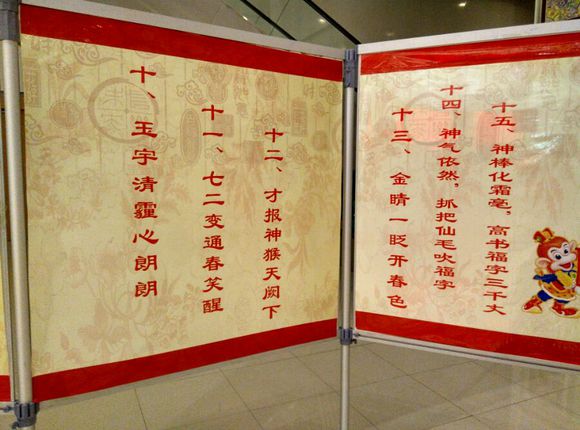 十、玉宇清霾心朗朗
十一、七二变通春笑醒
十二、才报神猴天阙下
十三、金睛一眨开春色
十四、神气依然，抓把仙毛吹福字
十五、神棒化霜毫，高书福字三千丈